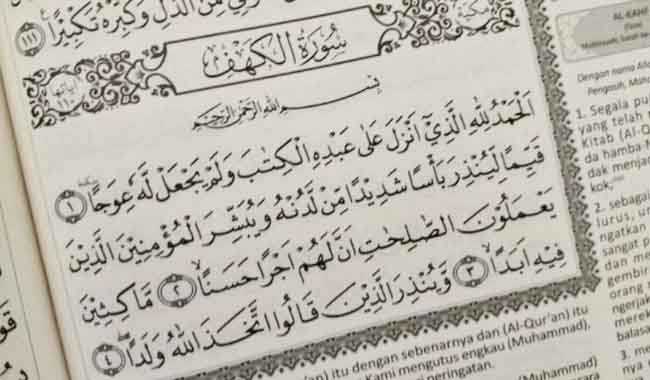 مِّنَ الذُّلِّ وَكَبِّرْهُ تَكْبِيْرًا ١١١
مكية
سُوْرَةُ الْكَهْفِ
اٰياتها ١١٠
بِسْمِ اللّٰهِ الرَّحْمٰنِ الرَّحِيْمِ
اَلْحَمْدُ لِلّٰهِ الَّذِيْٓ اَنْزَلَ عَلٰى عَبْدِهِ الْكِتٰبَ وَلَمْ يَجْعَلْ لَّهٗ عِوَجًا ١
قَيِّمًا لِّيُنْذِرَ بَأْسًا شَدِيْدًا مِّنْ لَّدُنْهُ وَيُبَشِّرَ الْمُؤْمِنِيْنَ الَّذِيْنَ
يَعْمَلُوْنَ الصّٰلِحٰتِ اَنَّ لَهُمْ اَجْرًا حَسَنًا ٢ مَّاكِثِيْنَ
فِيْهِ اَبَدًا ٣ وَّيُنْذِرَ الَّذِيْنَ قَالُوا اتَّخَذَ اللّٰهُ وَلَدًا ٤
AL-KAHF
(Gua)
Dengan nama
Pengasih,
1. Segala
yang telah
Kitab (Al-Q
da hamba-
dak
kok;
2. sebagai
lurus,
ngatkan
sangat
dan
orang
3.
itu dengan sebenarnya dan (Al-Qur'an) itu
Kami mengutus engkau (Muhammad),
peringatan.
(Muhammad)